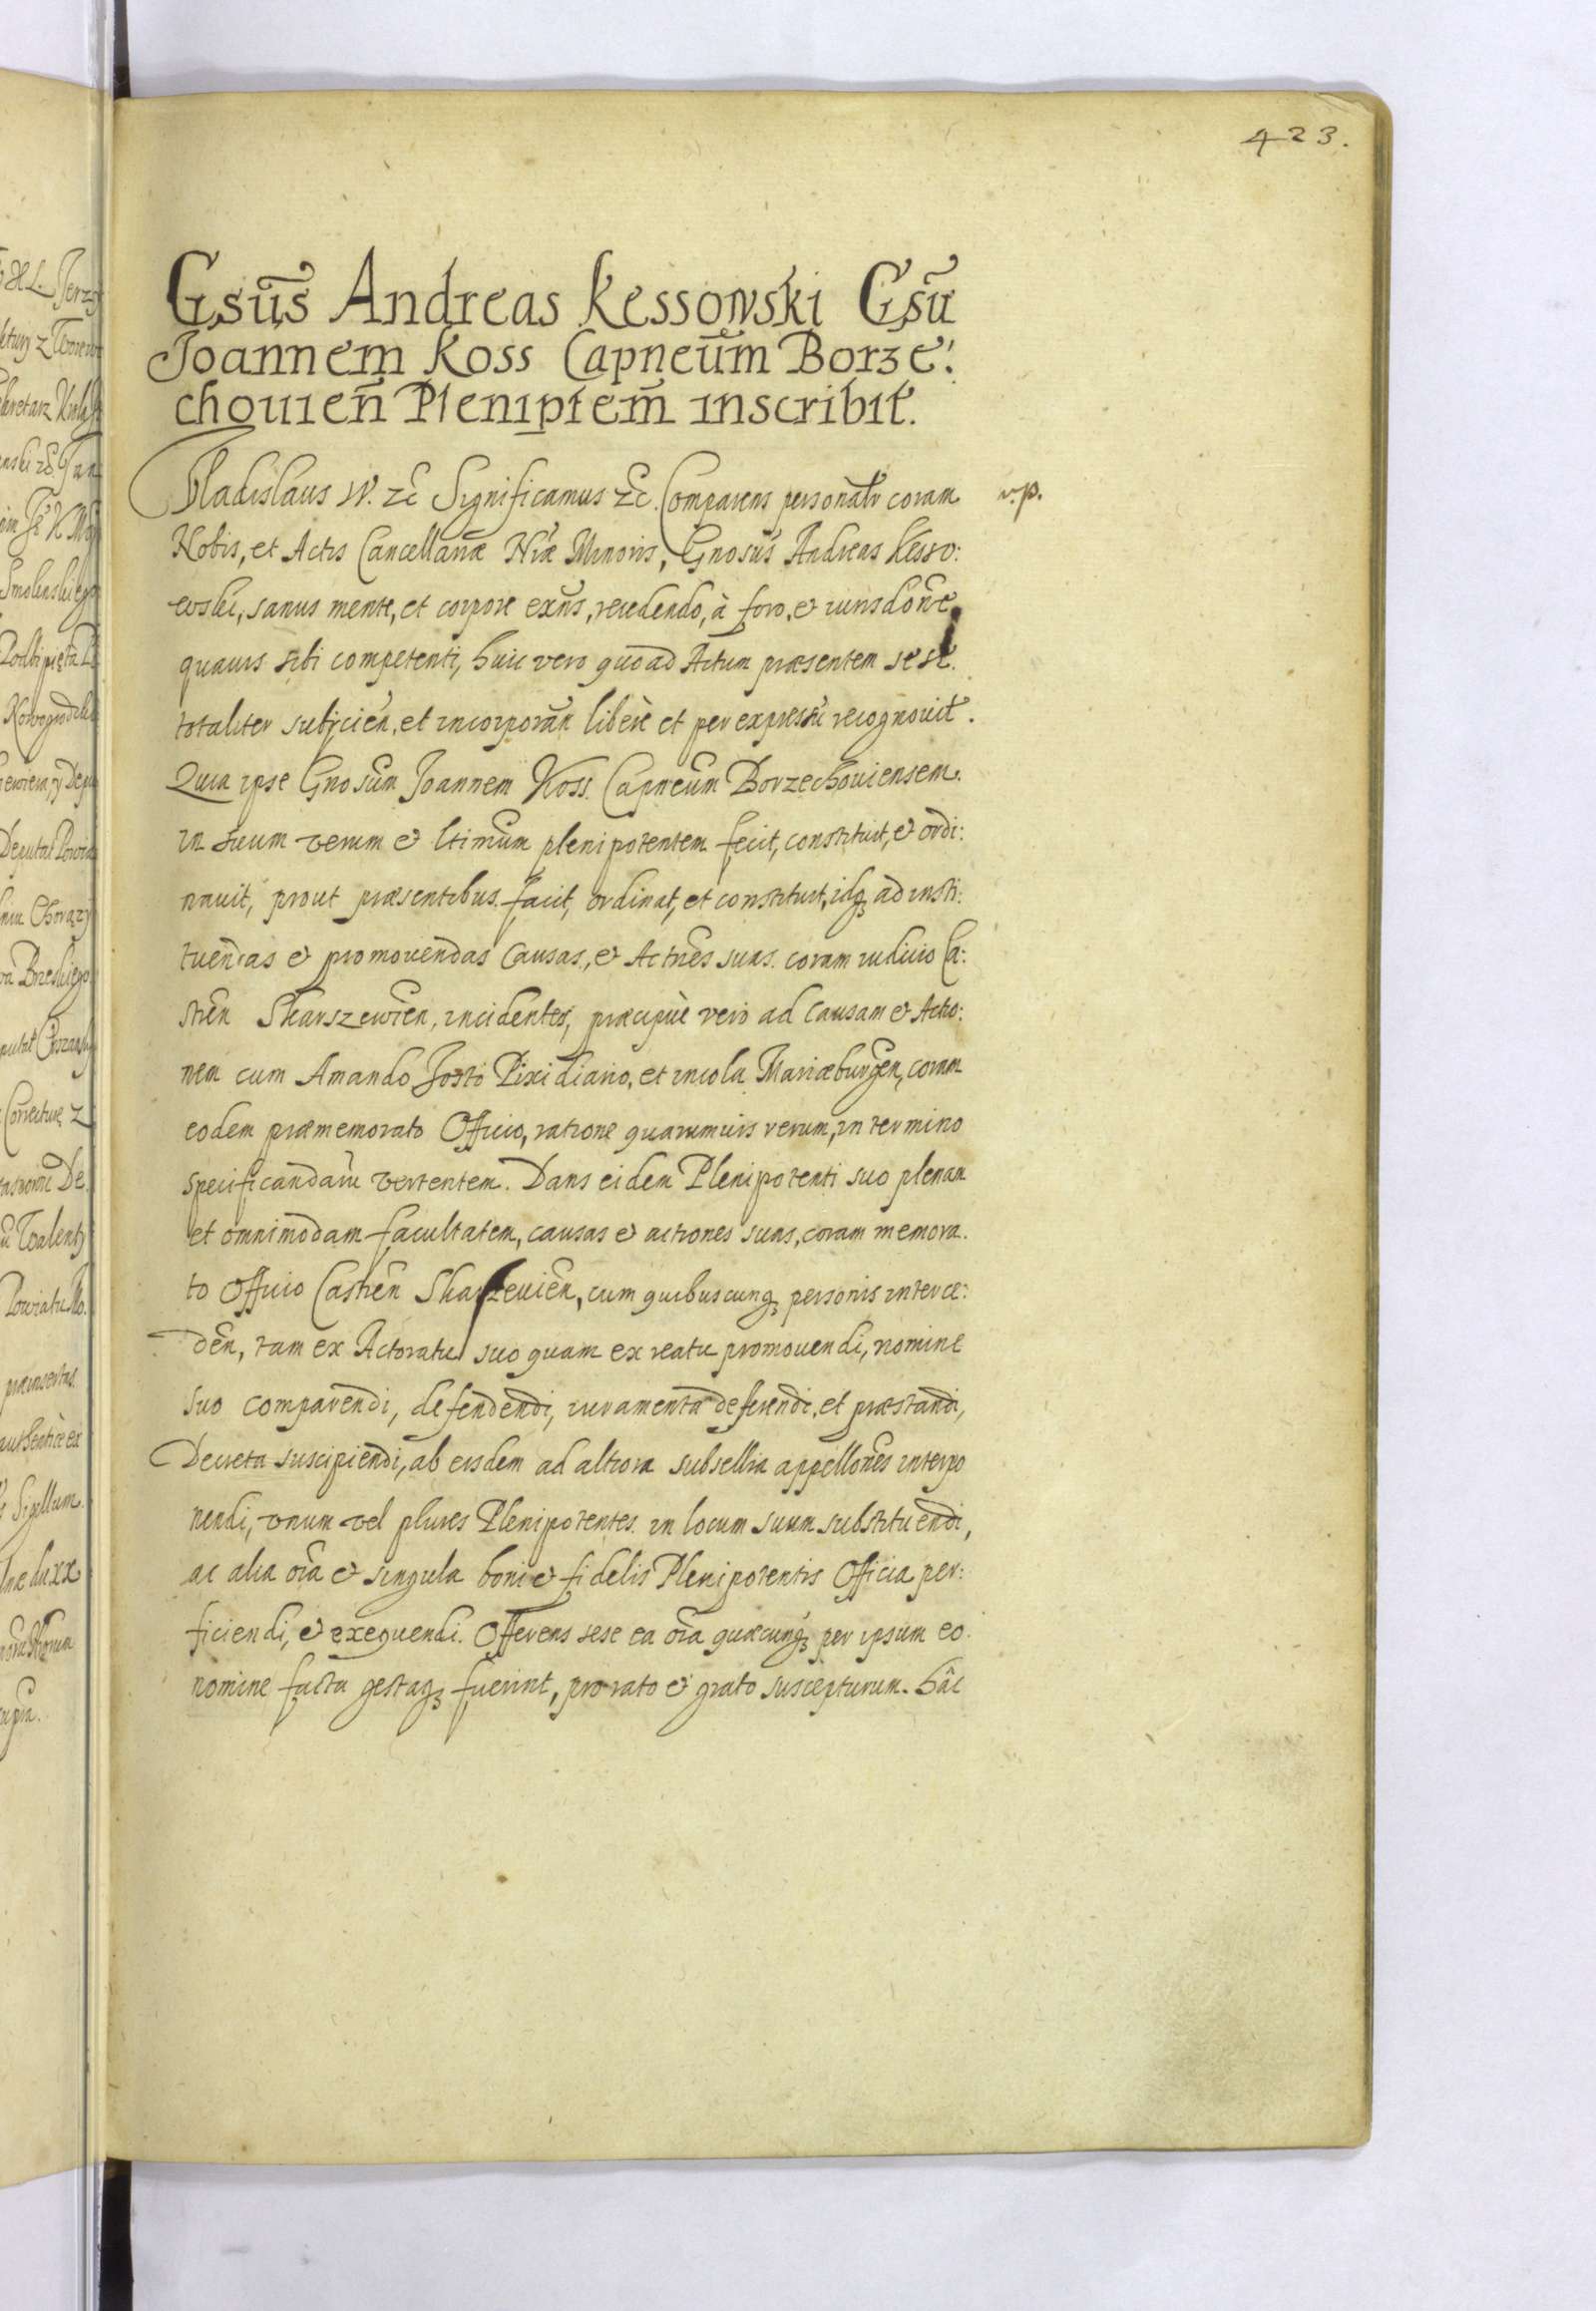 423.
Gsūs Andreas Kessowski Gsū
Joannem Koss Capneūm Borze:
chouien̄ Plenipīem̄ inscribit.
Vladislaus IV. ꝛc̄ Significamus ꝛc̄. Comparens personālr coram
v.p.
Nobis, et Actis Cancellariæ Nræ Minoris, Gnosus Andreas Kesso:
wski, sanus mente, et corpore exn̄s, recedendo, à foro, & iurisdōne
quauis sibi competenti, huic vero quoad Actum præsentem sese.
totaliter subijcien̄, et incorporan̄ liberè et per expressū recognouit.
Quia ipse Gnosūm Joannem Koss. Capneūm Borzechouiensem.
in suum verum & ltimūm plenipotentem fecit, constituit, & ordi:
nauit, prout præsentibus. facit, ordinat, et constituit, idqꝫ ad insti:
tuendas & promouendas Causas, & Actnēs suas. coram iudicio Ca:
stren̄ Skarszewien̄, incidentes, præcipuè vero ad Causam & Actio:
nem cum Amando Josti Pixidiario, et incola Mariæburgen̄, coram
eodem præmemorato Officio, ratione quarumuis rerum, in termino
specificandarū vertentem. Dans eidem Plenipotenti suo plenam
et omnimodam facultatem, causas & actiones suas, coram memora.
to Officio Castren̄ Skarszeuien̄, cum quibuscunqꝫ personis interce:
den̄, tam ex Actoratu suo quam ex reatu promouendi, nomine
suo comparendi, defendendi, iuramenta deferendi, et præstandi,
Decreta suscipiendi, ab eisdem ad altiora subsellia appellōnes interpo
nendi, vnum vel plures Plenipotentes. in locum suum substituendi,
ac alia oīa & singula boni & fidelis Plenipotentis Officia per:
ficiendi, & exequendi. Offerens sese ea oīa quæcunqꝫ per ipsum eo.
nomine facta gestaqꝫ fuerint, pro rato & grato suscepturum. hâc